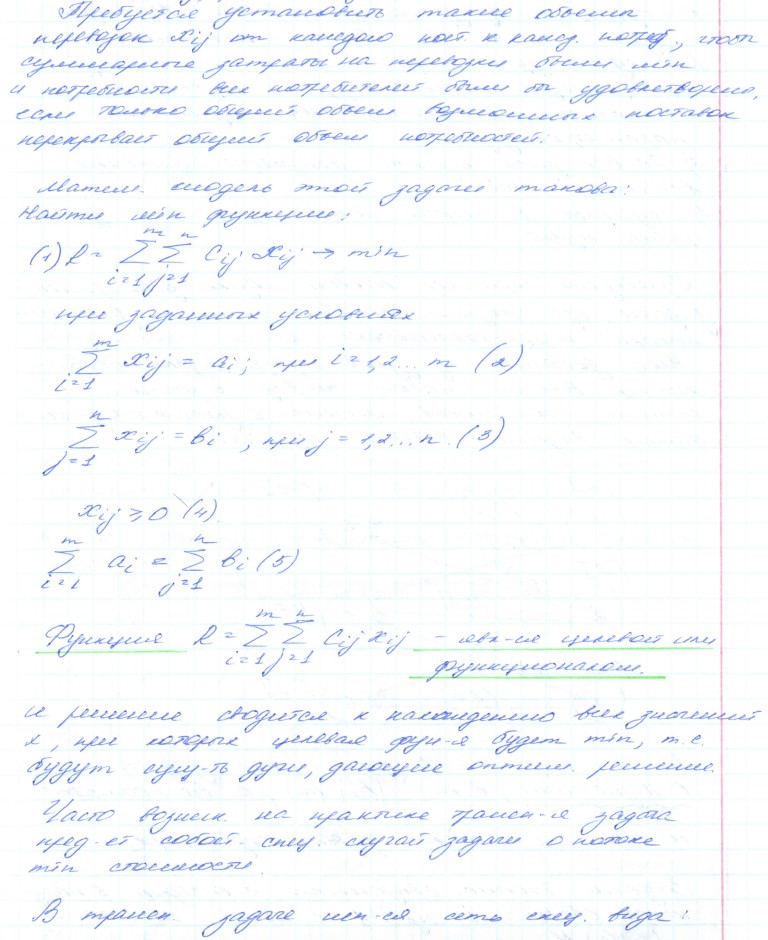 Требуется установить такие объемы
перевозок Xij от каждого пост. к кажд. потреб., чтобы
суммарные затраты на перевозки были min
и потребности всех потребителей были бы удовлетворены,
если только общий объем возможных поставок
перекрывает общий объем потребностей.
Матем. модель этой задачи такова:
Найти min функции:
(1) R = m∑i=1 n∑j=1 Cij Xij → min
при заданных условиях
m∑i=1 Xij = ai, при i=1,2...m (2)
n∑j=1 Xij = вi, при j=1,2...n (3)
Xij ≥ 0 (4)
m∑i=1 ai = n∑j=1 вi (5)
Функция R = m∑i=1 n∑j=1 Cij Xij – явл-ся целевой или
функционалом.
и решение сводится к нахождению всех значений
x, при которых целевая фун-я будет min, т.е.
будут сущ-ть дуги, дающие оптим. решение.
Часто возник. на практике трансп-я задача
пред-ет собой спец. случай задачи о потоке
min стоимости.
В трансп. задаче исп-ся сеть спец. вида: